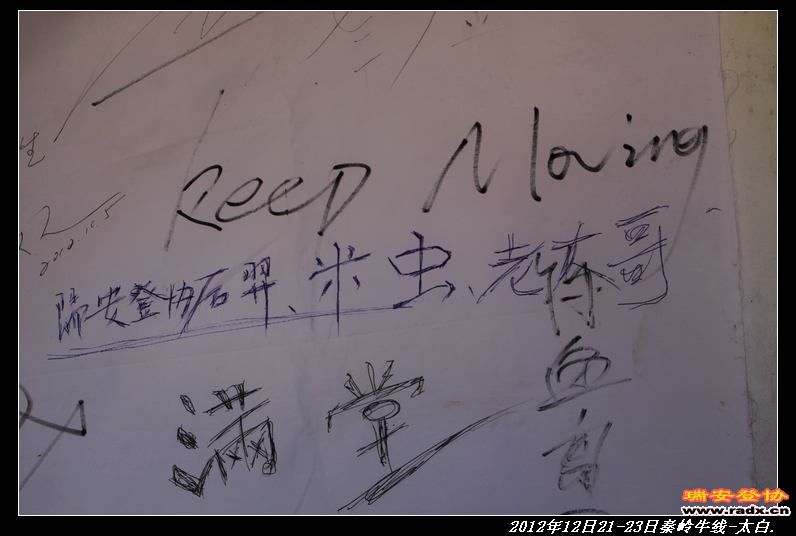 生
KeeP Moving
2012.10.5
瑞安登协后羿、米虫、老陈哥
满堂
瑞安登协
www.radx.cn
2012年12日21-23日秦岭牛线-太白.